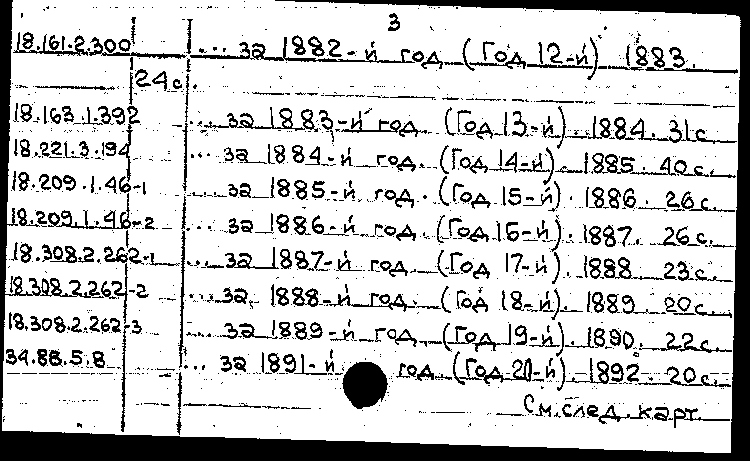 3
18.161.2.300 ... за 1882-й год (Год 12-й) 1883.
24 с.
18.163.1.392 ... за 1883-й год. (Год 13-й). 1884. 31 с.
18.221.3.194 ... за 1884-й год. (Год 14-й). 1885. 40 с.
18.209.1.46-1 ... за 1885-й год. (Год 15-й). 1886. 26 с.
18.209.1.46-2 ... за 1886-й год. (Год 16-й). 1887. 26 с.
18.308.2.262-1 ... за 1887-й год. (Год 17-й). 1888. 23 с.
18.308.2.262-2 ... за 1888-й год. (Год 18-й). 1889. 20 с.
18.308.2.262-3 ... за 1889-й год. (Год 19-й). 1890. 22 с.
34.88.5.8 ... за 1891-й год. (Год 21-й). 1892. 20 с.
См. след. карт.